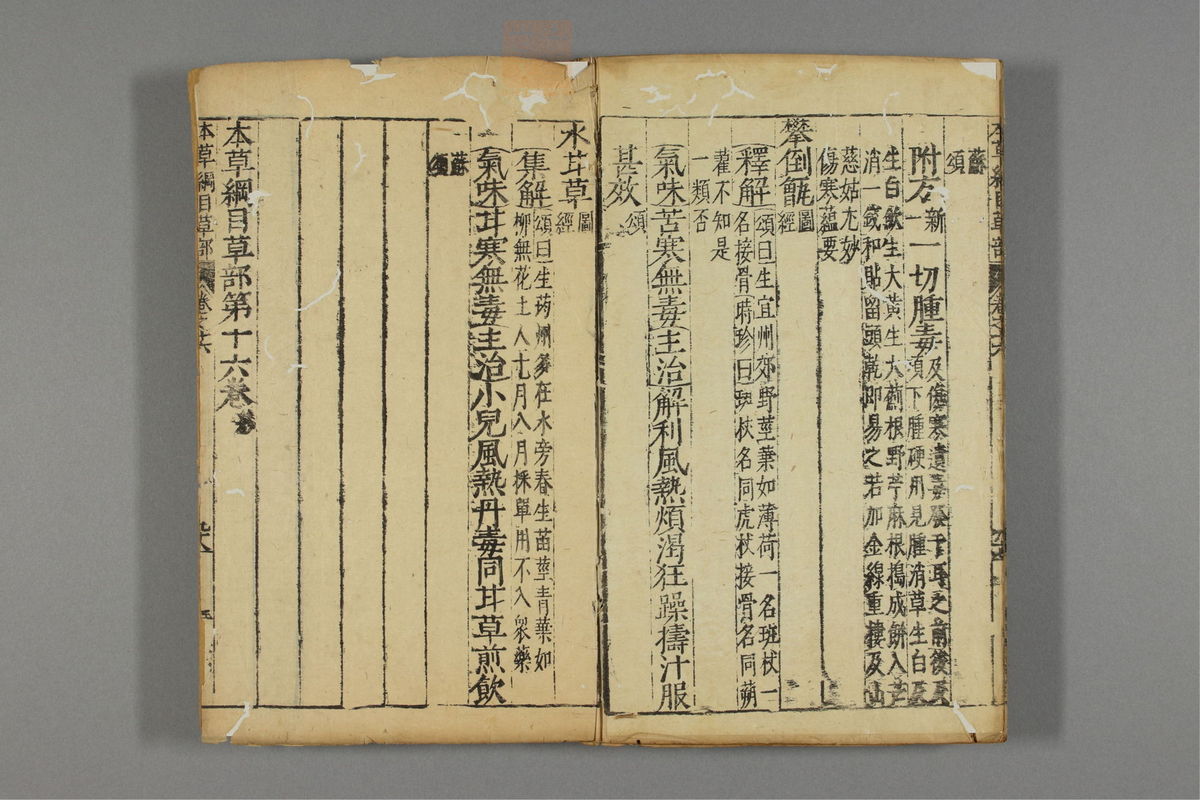 蘇頌
附方新一一切腫毒及傷寒遺毒發于耳之前後及
項下腫硬用見腫消草生白及
生白歛生大黃生大薊根野苧麻根搗成餅入芒
消一錢和貼留頭乾即易之若加金線重樓及山
慈姑尤妙
傷寒蘊要
攀倒甑圖經
釋解頌曰生宜州郊野莖葉如薄荷一名班杖一
名接骨時珍曰班杖名同虎杖接骨名同蒴
藋不知是
一類否
氣味苦寒無毒主治解利風熱煩渴狂躁擣汁服
甚效頌
水甘草圖經
集解頌曰生筠州多在水旁春生苗莖青葉如
柳無花土人七月八月採單用不入衆藥
氣味甘寒無毒主治小兒風熱丹毒同甘草煎飲
蘇頌
本草綱目草部第十六卷終
本草綱目草部 卷之十六